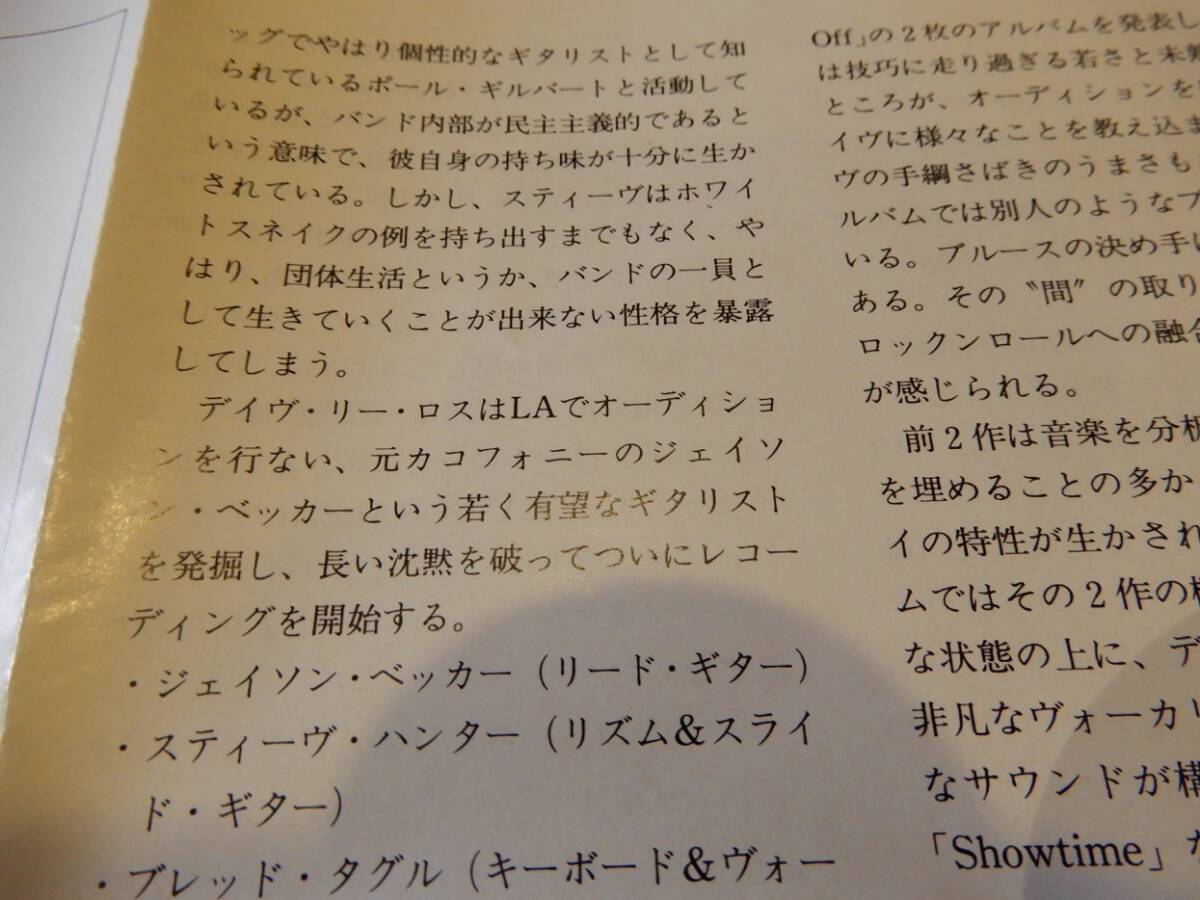 ッグでやはり個性的なギタリストとして知
られているポール・ギルバートと活動して
いるが、バンド内部が民主主義的であると
いう意味で、彼自身の持ち味が十分に生か
されている。しかし、スティーヴはホワイ
トスネイクの例を持ち出すまでもなく、や
はり、団体生活というか、バンドの一員と
して生きていくことが出来ない性格を暴露
してしまう。
デイヴ・リー・ロスはLAでオーディショ
ンを行ない、元カコフォニーのジェイソ
ン・ベッカーという若く有望なギタリスト
を発掘し、長い沈黙を破ってついにレコー
ディングを開始する。
・ジェイソン・ベッカー（リード・ギター）
・スティーヴ・ハンター（リズム&スライ
ド・ギター）
・ブレッド・タグル（キーボード&ヴォー
Off」の2枚のアルバムを発表し
は技巧に走り過ぎる若さと未
ところが、オーディションを
イヴに様々なことを教え込ま
ヴの手綱さばきのうまさも
ルバムでは別人のようなプ
いる。ブルースの決め手に
ある。その〝間〟の取り
ロックンロールへの融合
が感じられる。
前2作は音楽を分析
を埋めることの多か
イの特性が生かされ
ムではその2作の
な状態の上に、デ
非凡なヴォーカリ
なサウンドが構
「Showtime」な